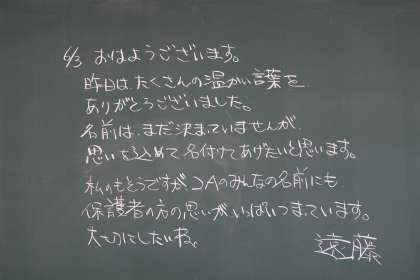 6/3 おはようございます。
昨日は、たくさんの温かい言葉を
ありがとうございました。
名前は、まだ決まっていませんが、
思いを込めて名付けてあげたいと思います。
私のもそうですが、2Aのみんなの名前にも
保護者の方の思いがいっぱいつまっています。
大切にしたいね。
遠藤